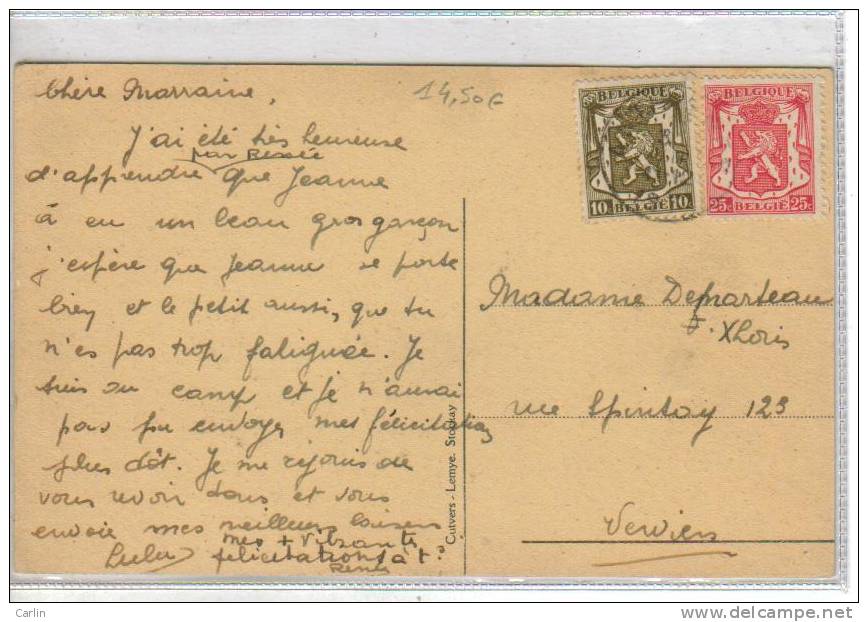 Chère Marraine,
14,50€
J'ai été très heureuse
par Renée
d'apprendre que Jeanne
à eu un beau gros garçon
j'espère que Jeanne se porte
bien et le petit aussi, que tu
n'es pas trop fatiguée. Je
suis au camp et je n'aurai
pas pu envoyer mes félicitations
plus tôt. Je me réjouis de
vous revoir tous et vous
envoie mes meilleurs baisers
Lulu
mes + vibrantes
félicitations à t s
Renée
BELGIQUE
10c BELGIË 10c
BELGIQUE
25c BELGIË 25c
Madame Departeau
F. Xhoris
rue Spintay 123
Verviers
Cutvers - Lemye. Stockay
Carlin
http://www.delcampe.net